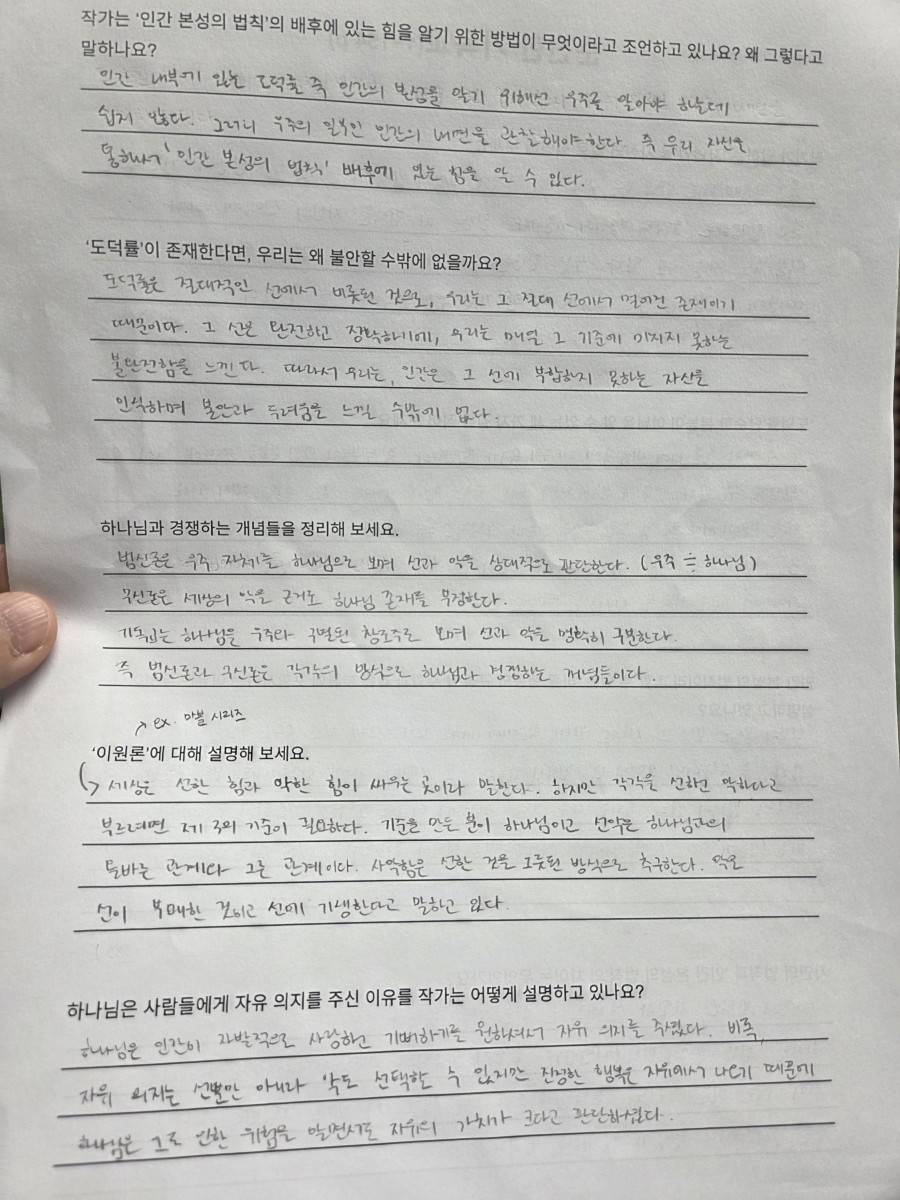 작가는 '인간 본성의 법칙'의 배후에 있는 힘을 알기 위한 방법이 무엇이라고 조언하고 있나요? 왜 그렇다고
말하나요?
인간 내부에 있는 도덕률 즉 인간의 본성을 알기 위해선 우주를 알아야 하는데
쉽지 않다. 그러니 우주의 일부인 인간의 내면을 관찰해야한다. 즉 우리 자신을
통해서 '인간 본성의 법칙' 배후에 있는 힘을 알 수 있다.
'도덕률'이 존재한다면, 우리는 왜 불안할 수밖에 없을까요?
도덕률은 절대적인 선에서 비롯된 것으로, 우리는 그 절대 선에서 멀어진 존재이기
때문이다. 그 선은 완전하고 정확하기에, 우리는 매일 그 기준에 미치지 못하는
불완전함을 느낀다. 따라서 우리는, 인간은 그 선에 부합하지 못하는 자신을
인식하며 불안과 두려움을 느낄 수밖에 없다.
하나님과 경쟁하는 개념들을 정리해 보세요.
범신론은 우주 자체를 하나님으로 보며 선과 악을 상대적으로 판단한다. (우주 ≒ 하나님)
무신론은 세상의 악을 근거로 하나님 존재를 부정한다.
기독교는 하나님을 우주와 구별된 창조주로 보며 선과 악을 명확히 구분한다.
즉 범신론과 무신론은 각각의 방식으로 하나님과 경쟁하는 개념들이다.
↗ ex. 마블 시리즈
'이원론'에 대해 설명해 보세요.
↳ 세상은 선한 힘과 악한 힘이 싸우는 곳이라 말한다. 하지만 각각을 선하고 악하다고
부르려면 제 3의 기준이 필요하다. 기준을 만든 분이 하나님이고 선악은 하나님과의
올바른 관계와 그른 관계이다. 사악함은 선한 것을 그릇된 방식으로 추구한다. 악은
선이 부패한 것이고 선에 기생한다고 말하고 있다.
하나님은 사람들에게 자유 의지를 주신 이유를 작가는 어떻게 설명하고 있나요?
하나님은 인간이 자발적으로 사랑하고 기뻐하기를 원하셔서 자유 의지를 주셨다. 비록,
자유 의지는 선뿐만 아니라 악도 선택할 수 있지만 진정한 행복은 자유에서 나오기 때문에
하나님은 그로 인한 위험을 알면서도 자유의 가치가 크다고 판단하셨다.